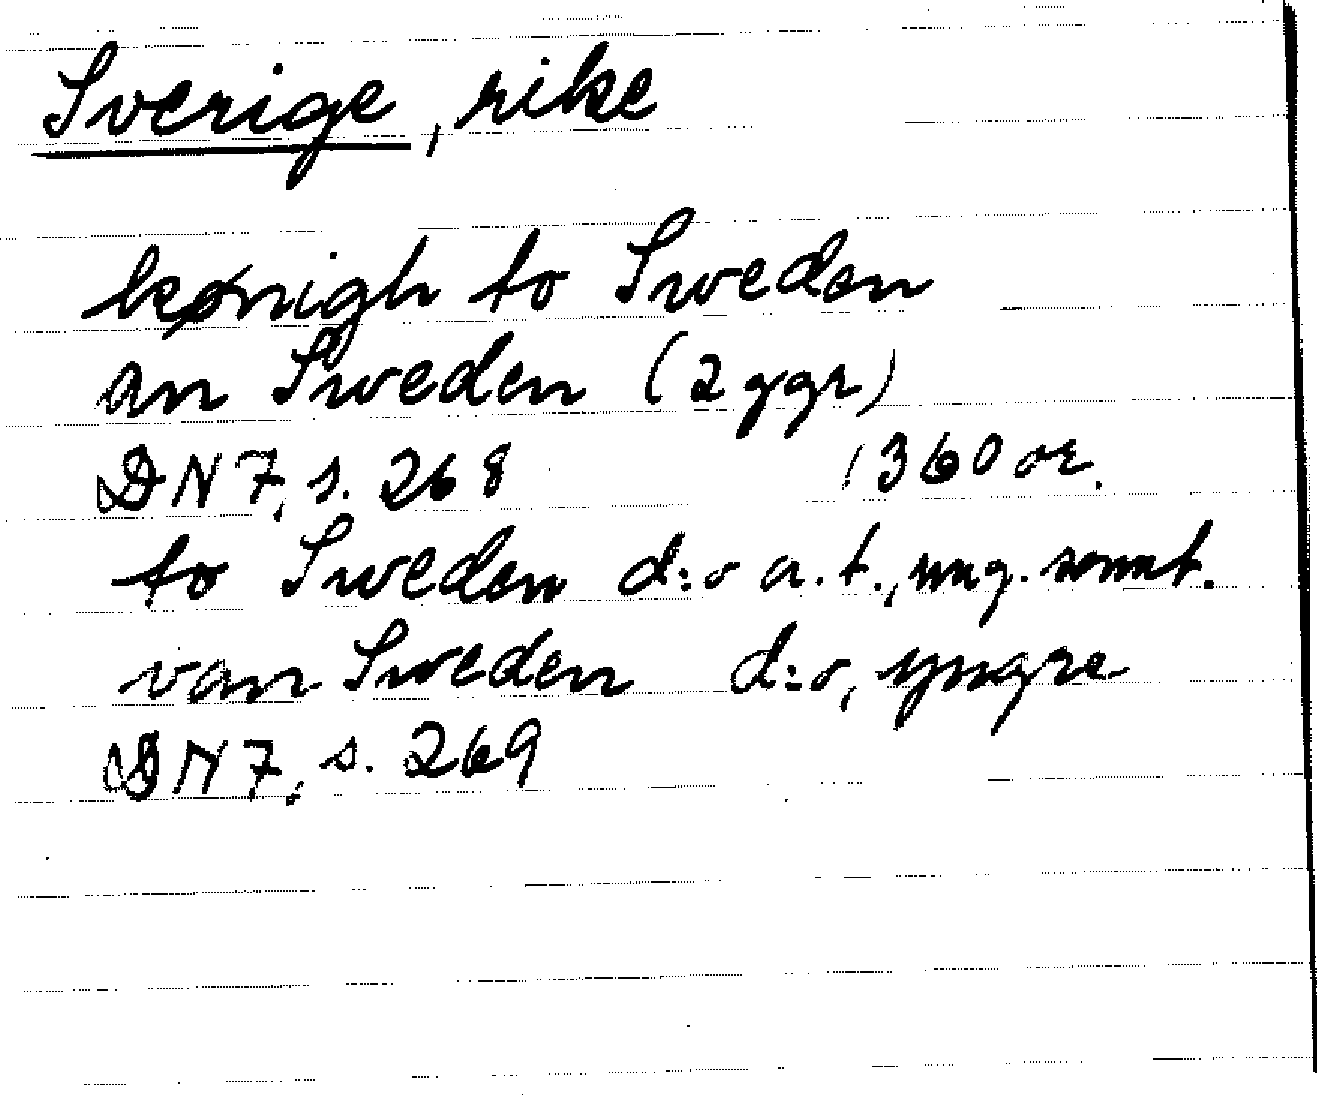 Sverige, rike
kønigh to Sweden
an Sweden (2 ggr)
DN 7, s. 268 1360 or.
to Sweden d:o a.t., ung. samt.
van Sweden d:o, yngre
DN 7, s. 269